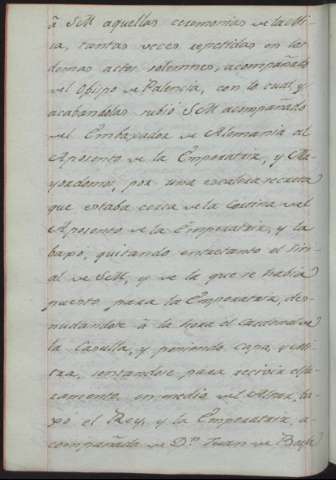 à S M aquellas ceremonias de la Mi-
sa, tantas veces repetidas en los
demas actos solemnes, acompañado
del Obispo de Palencia, con lo cual y
acabandolas subió S M acompañado
del Embaxador de Alemania al
Aposento de la Emperatriz, y Ma-
yordomos, por una escalera secreta
que estaba cerca de la Cortina del
Aposento de la Emperatriz, y la
baxó, quitando entretanto el siti-
al de S M, y de la que se habia
puesto para la Emperatriz, des-
nudandose à la hora el Cardenal
la Capilla, y poniendo capa, y Mi-
tra, sentandose para recivir el Sa-
cramento en medio del Altar, ba-
xó el Rey, y la Emperatriz, a-
compañada de Dn. Juan de Borja